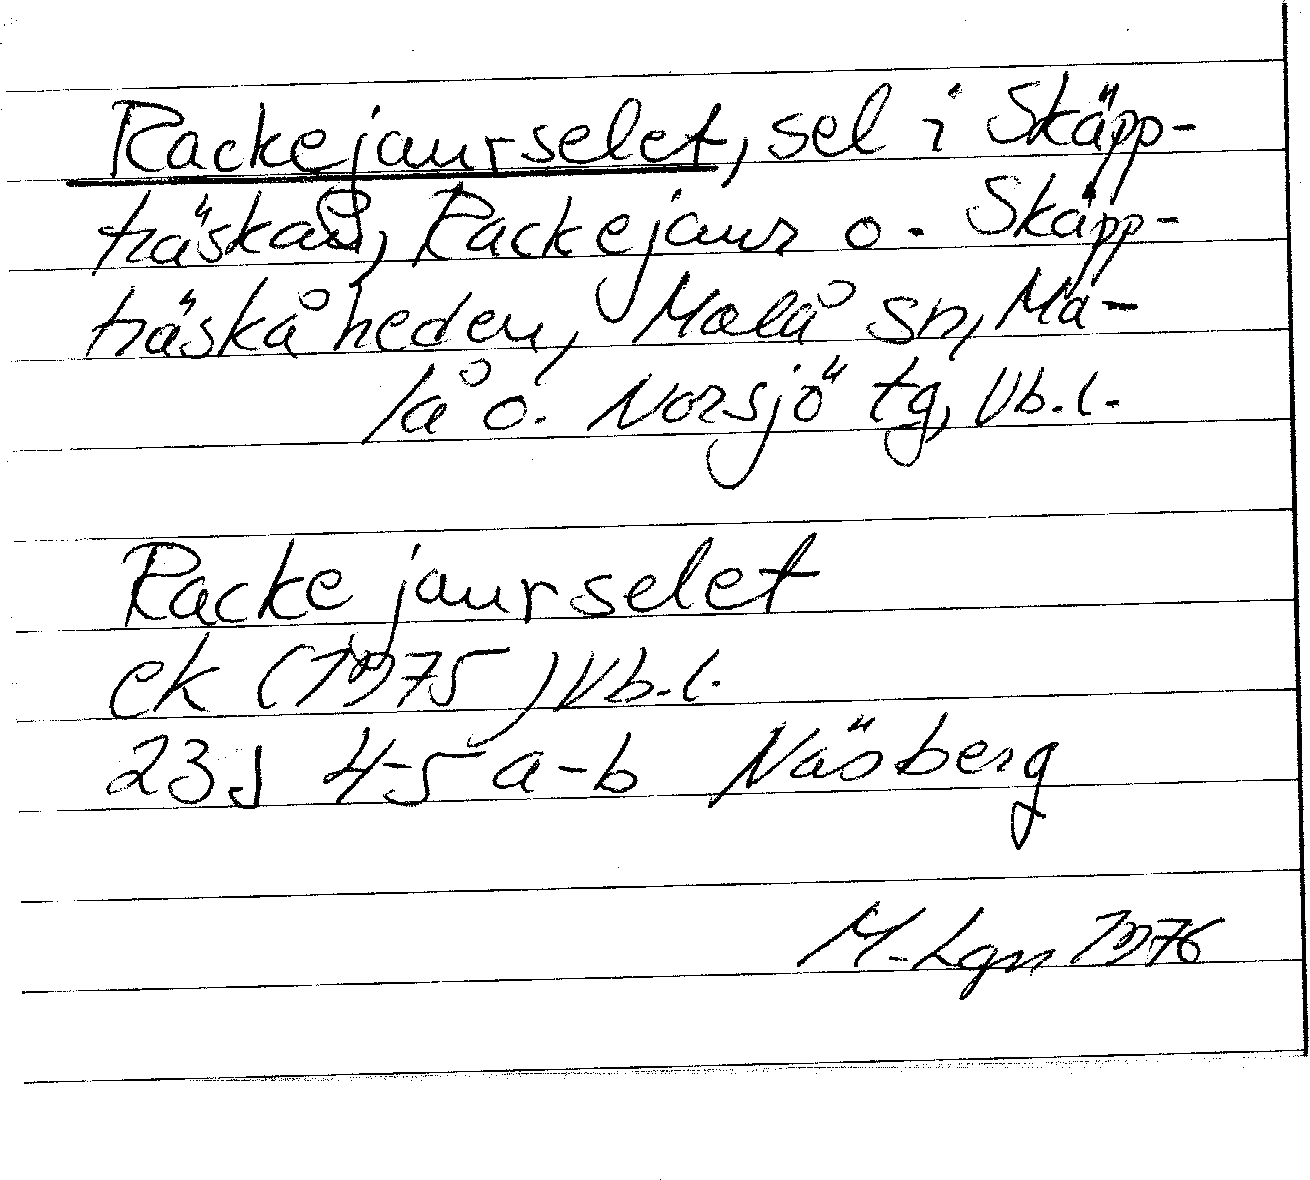 Rackejaurselet, sel i Skäpp-
träskån, Rackejaur o. Skäpp-
träskåheden, Malå sn, Ma-
lå o. Norsjö tg, Vb.l.
Rackejaurselet
ek (1975) Vb.l.
23J 4-5 a-b Näsberg
M-Lgn 1976